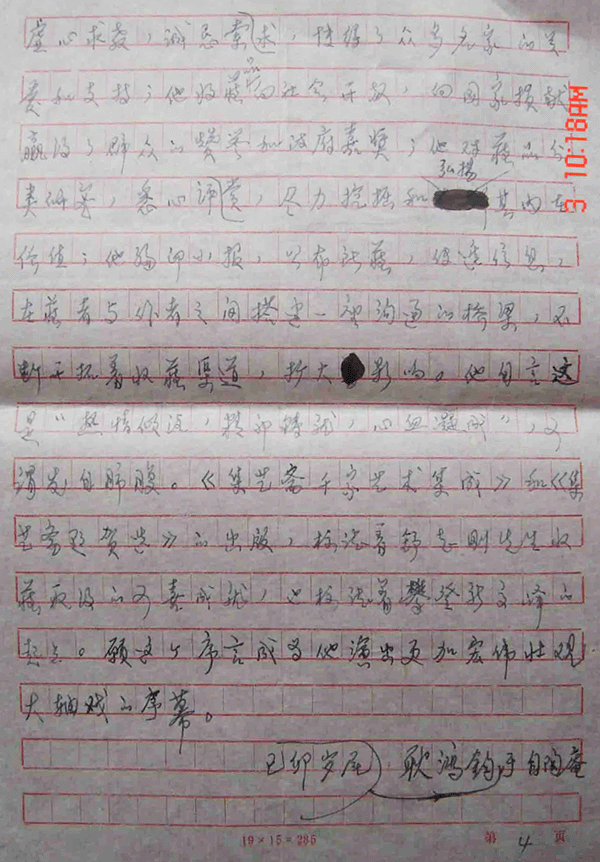 虚心求教，诚恳索求，博得了众多名家的关
爱和支持；他将藏品向社会开放，向国家捐献
赢得了群众的赞誉和政府嘉奖；他对藏品分
类研究，悉心评赏，尽力挖掘和弘扬其内在
价值；他编印小报，公布新藏，传递信息，
在藏者与作者之间搭建一座沟通的桥梁，不
断开拓着收藏渠道，扩大影响。他自言这
是“热情倾注，精神铸就，心血凝成”，可
谓发自肺腑。《集艺斋千家艺术集成》和《集
艺斋题贺选》的出版，标志着舒志刚先生收
藏取得的可喜成就，也标志着攀登新高峰的
起点。愿这个序言成为他演出更加宏伟壮观
大轴戏的序幕。
己卯岁尾 耿鸿钧于自陶庵
19×15=285
第 4 页
3 10:18AM